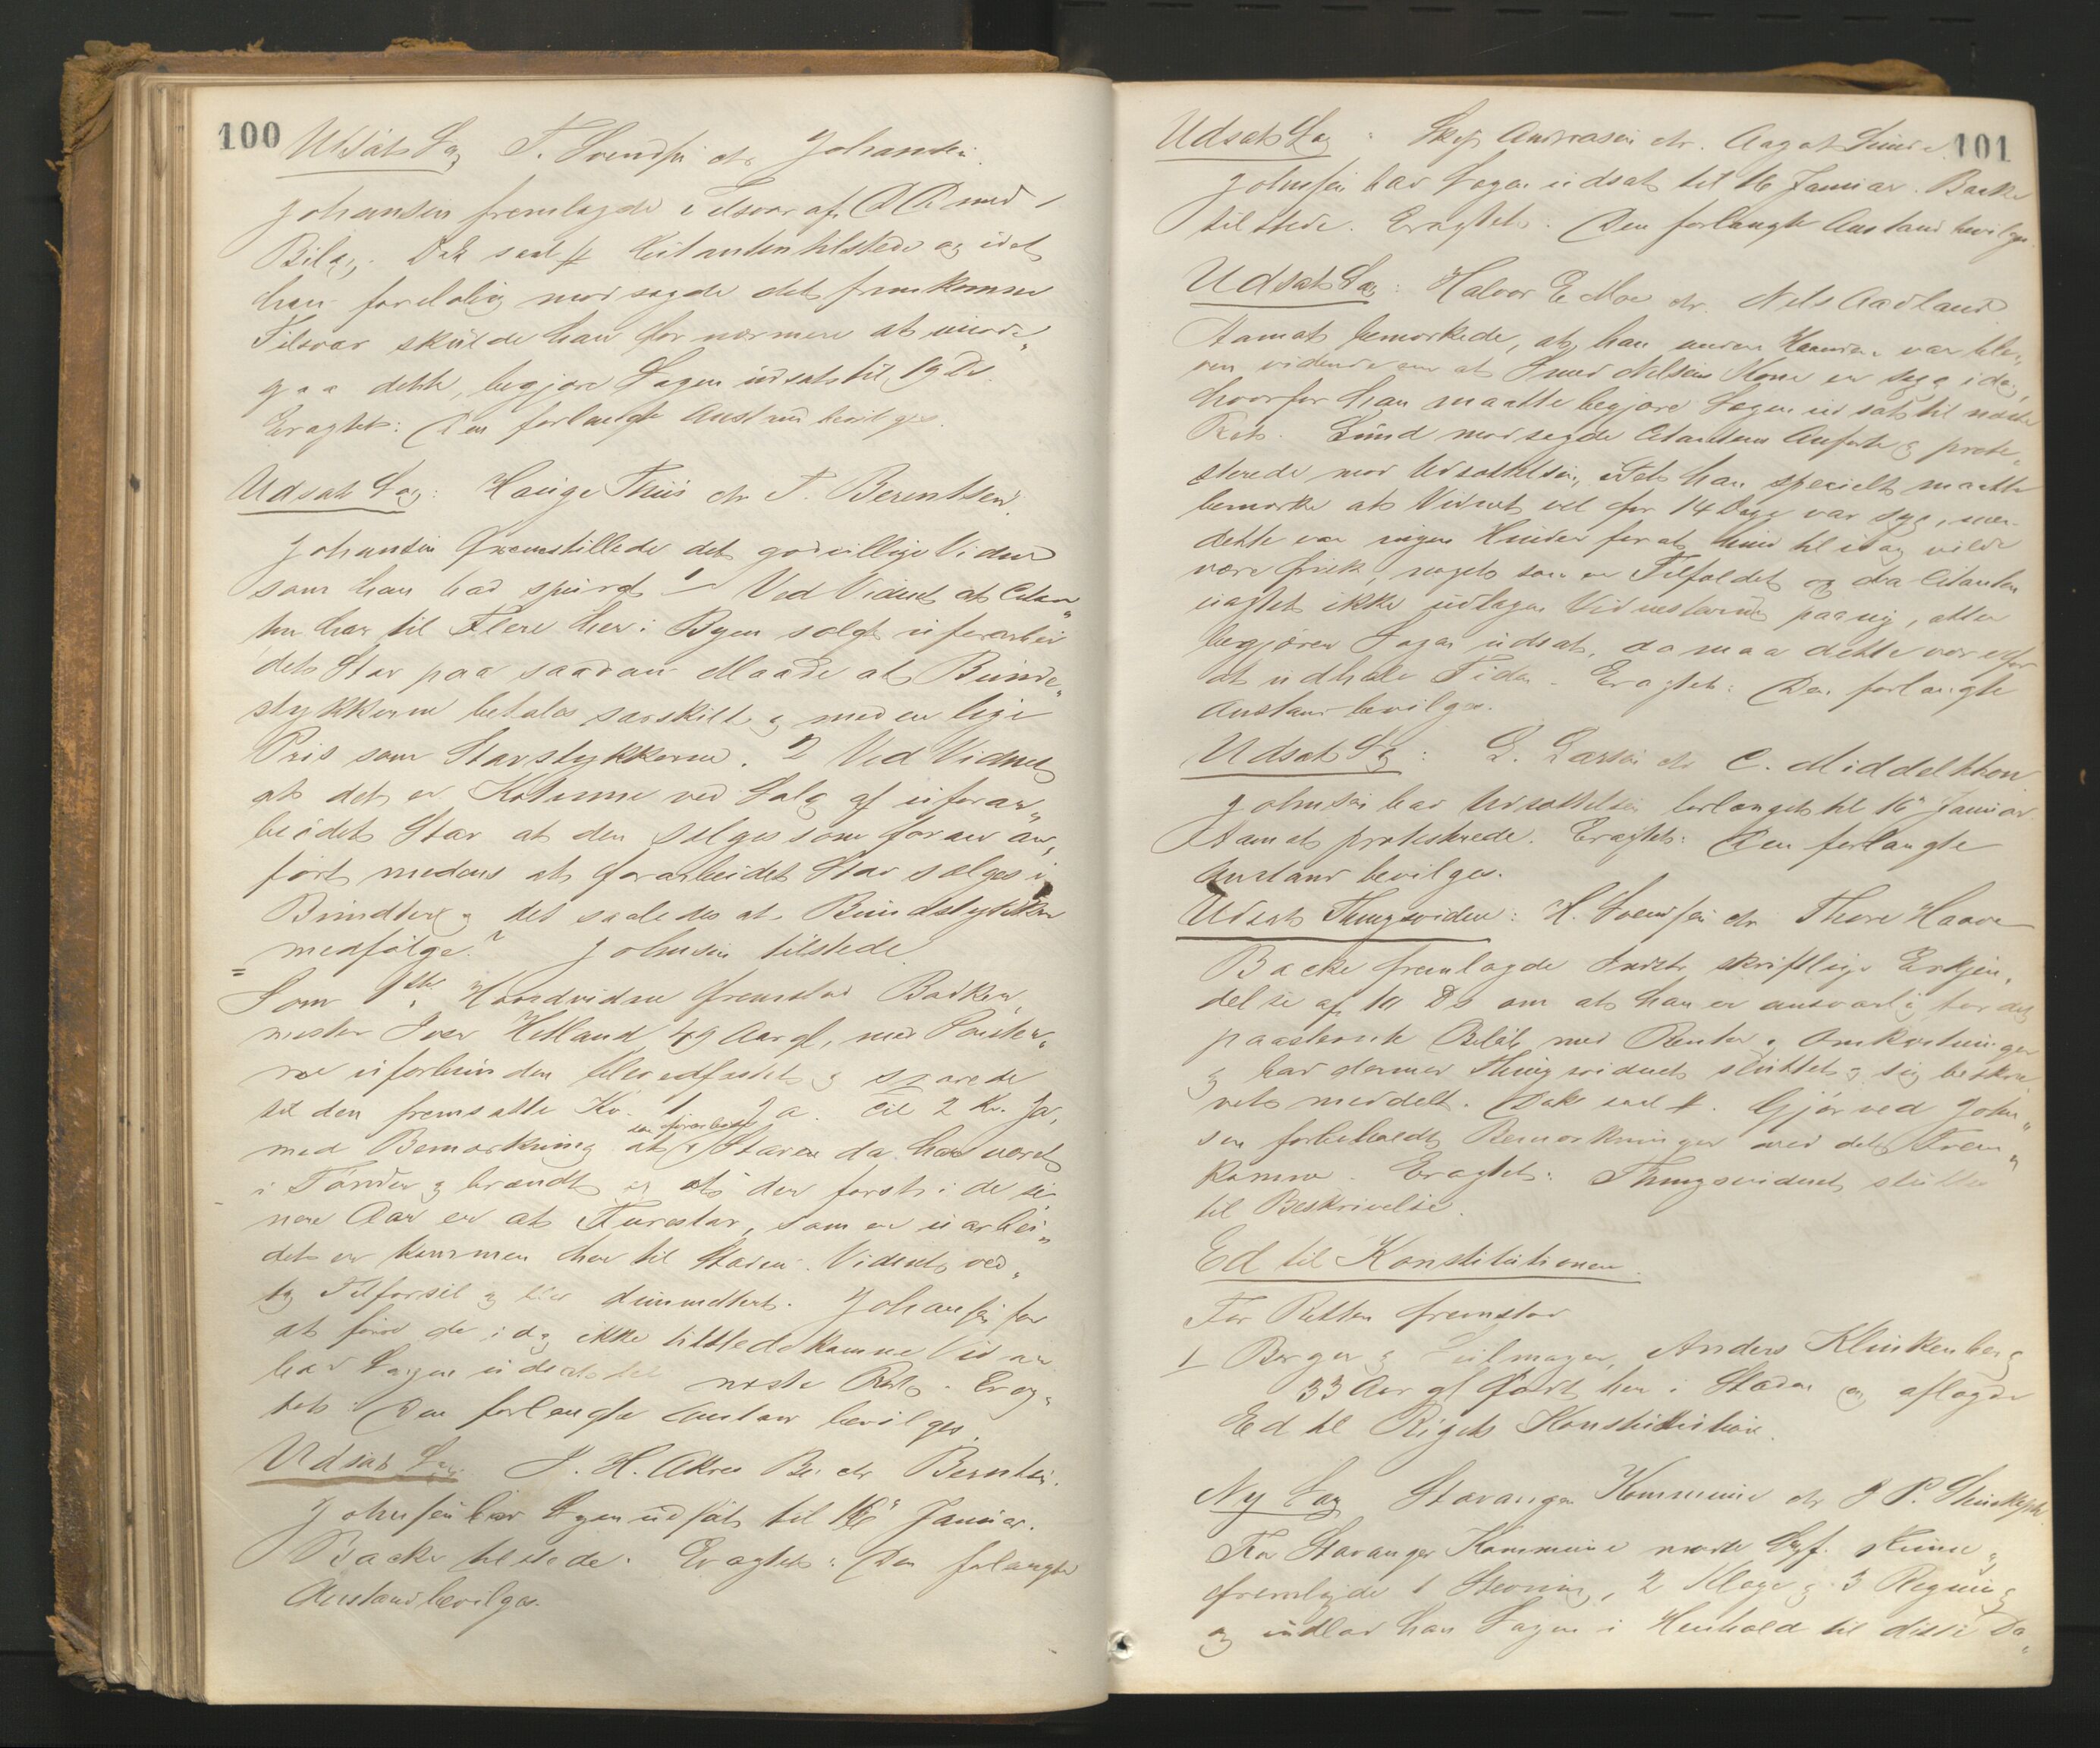 100
Udsat Sag T. Svendsen ctr Johansen.
Johansen fremlagde Tilsvar af D D med 1
Bilag. Dok sael # Citanten tilstede og idet
han foreløbig modsagde det fremkomne
Tilsvar skulde han for nærmere at imøde„
gaa dette, begjøre Sagen udsat til 19 Ds.
Eragtet: Den forlangte Anstand bevilges.
Udsat Sag: Hauge Thiis ctr T. Berentsen.
Johansen fremstillede det godvillige Vidne
som han bad spurgt 1 Ved Vidnet at Citan„
ten har til Flere her i Byen solgt uforarbei
det Stav paa saadan Maade at Bunde„
stykkerne betales særskilt og med en lige
Pris som Stavstykkerne. 2 Ved Vidnet
at det er Kotume ved Salg af uforar„
beidet Stav at den sælges som foran an„
ført medens at forarbeidet Stav sælges i
Bundter og det saaledes at Bundstykker
medfølge? Johnsen tilstede
Som 1ste Hovedvidne fremstod Bødker„
mester Iver Helland 49 Aar gl, med Parter„
ne uforbunden blev edfæstet og svarede
til den fremsatte Kv. 1 Ja. til 2 Kv. Ja,
med Bemærkning at som forarbeidet Staven da har været
i Tønder og brændt og at det først i de se
nere Aar er at Furestav, som er uarbei„
det er kommen her til Staden. Vidnet, ved„
tog Tilførsel og blev dimmetteret. Johansen for
at føre de idag ikke tilstedekomne Vidner
bad Sagen udsat til næste Ret. Erag„
tet: Den forlangte Anstand bevilges.
Udsat Sag J. H. Akres Bo ctr Berntsen.
Johnsen bad Sagen udsat til 16 Januar.
Backe tilstede. Eragtet: Den forlangte
Anstand bevilges.
101
Udsat Sag: Andreasen ctr. Aagot
Johnsen bad Sagen udsat til 16 Januar. Backe
tilstede. Eragtet: Den forlangte Anstand bevilges.
Udsat Sag: Halvor E Moe ctr. Nels Aadland
Aamodt bemærkede, at han var ble„
ven vidende om at Smed Nelsens Kone er syg idag,
hvorfor han maatte begjøre Sagen udsat til næste
Ret. Lund modsagde Citantens Anførte og prote„
sterede mod Udsættelsen, idet han specielt maatte
bemærke at Vidnet vel for 14 Dage var syg, men
dette var ingen Hinder for at hun til idag vilde
være frisk, noget som er Tilfældet og da Citanten
uagtet ikke udtagen Vidnestævning paany, atter
begjærer Sagen udsat, da maa dette være for
at udhale Tiden. Eragtet: Den forlangte
Anstand bevilges.
Udsat Sag: L. Larsen ctr C. Middelthon
Johnsen bad Udsættelsen forlænget til 16 Januar.
Aamodt protesterede. Eragtet: Den forlangte
Anstand bevilges.
Udsat Thingsvidne: H. Svendsen ctr Thore Haave
Backe fremlagde Indst. skriftlige Erkjen„
delse af 10 Ds om at han er ansvarlig for det
paastevnte Beløb med Renter og Omkostninger
og bad dermed Thingsvidnet sluttet og sig beskre
vet meddelt. Dok sael #. Gjør ved John„
sen forbeholdt Bemærkninger ved det Frem„
komne. Eragtet: Thingsvidnet sluttes
til Beskrivelse.
Ed til Konstitutionen.
For Retten fremstod
1 Borger og Seilmager, Anders Klinkenberg
33 Aar gl født her i Staden og aflagde
Ed til Rigets Konstitution.
Ny Sag Stavanger Kommune ctr J P.
For Stavanger Kommune mødte Sagf.
fremlagde 1 Stevning, 2 Klage og 3 Regning
og indlod han Sagen i Henhold til disse Do„